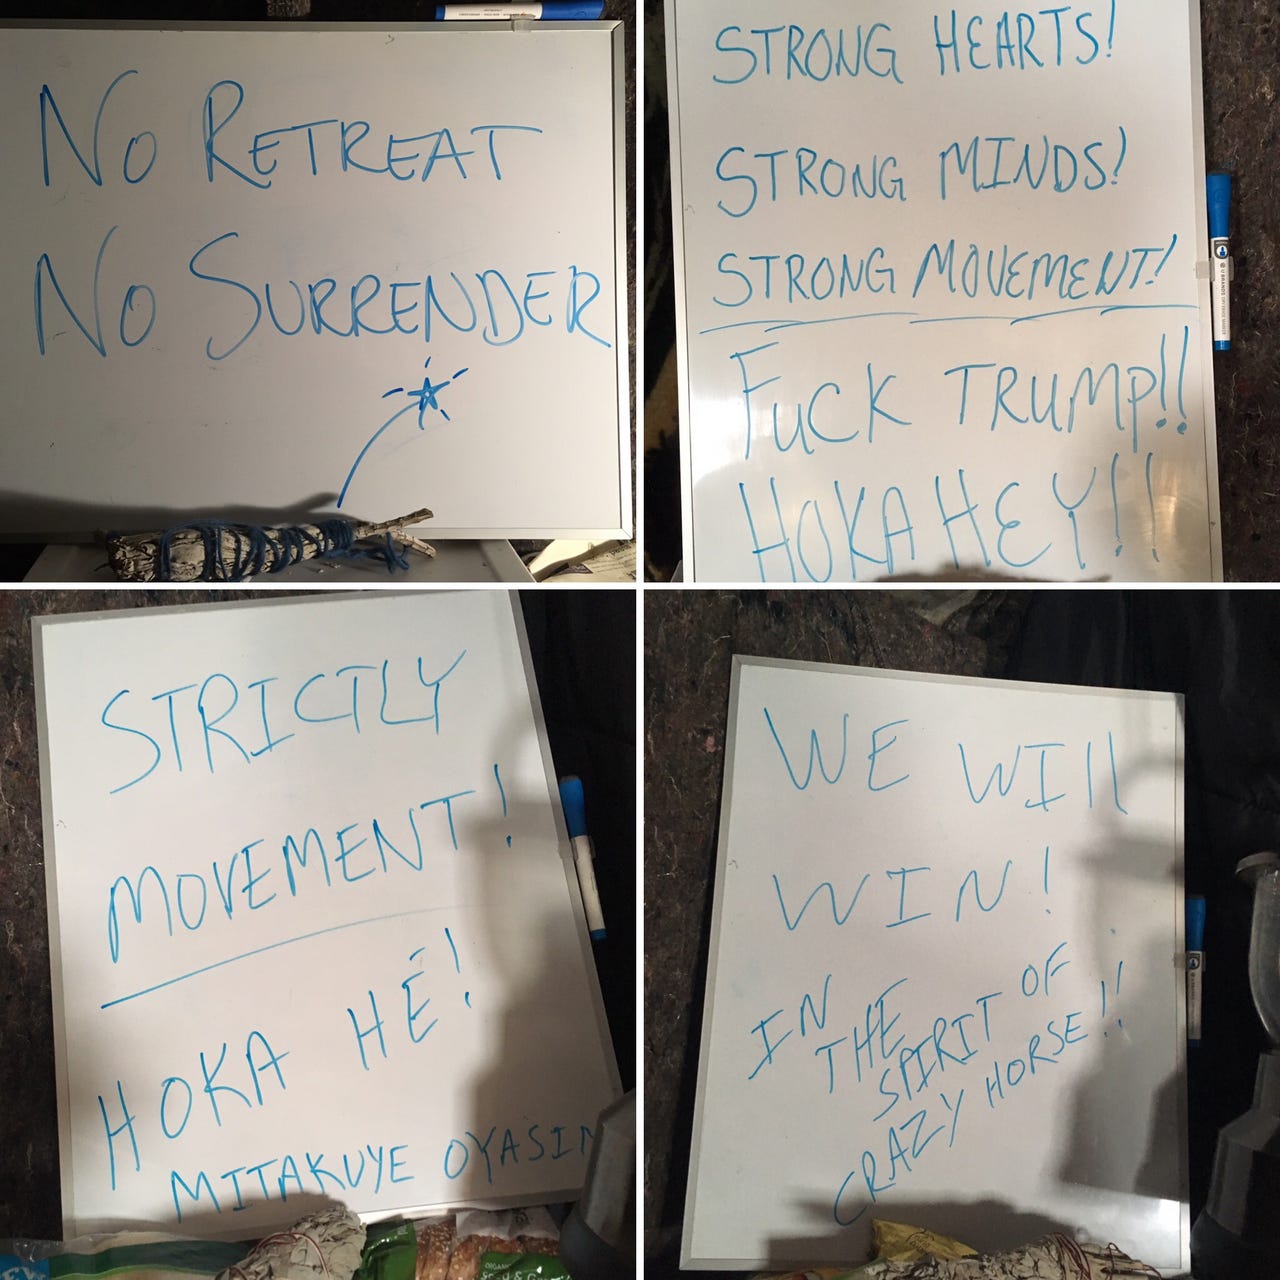 No RETREAT
No SURRENDER
STRONG HEARTS!
STRONG MINDS!
STRONG MOVEMENT!
FUCK TRUMP!!
HOKA HEY!!
U BRANDS
STRICTLY
MOVEMENT!
HOKA HÉ!
MITAKUYE OYASIN
ORGANIC
WE WIll
WIN!
IN THE SPIRIT OF
CRAZY HORSE!!